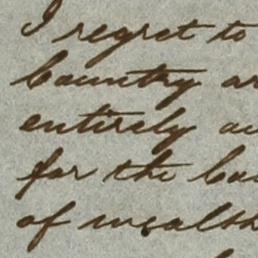 I regret to
Country
entirely
for the
of wealth